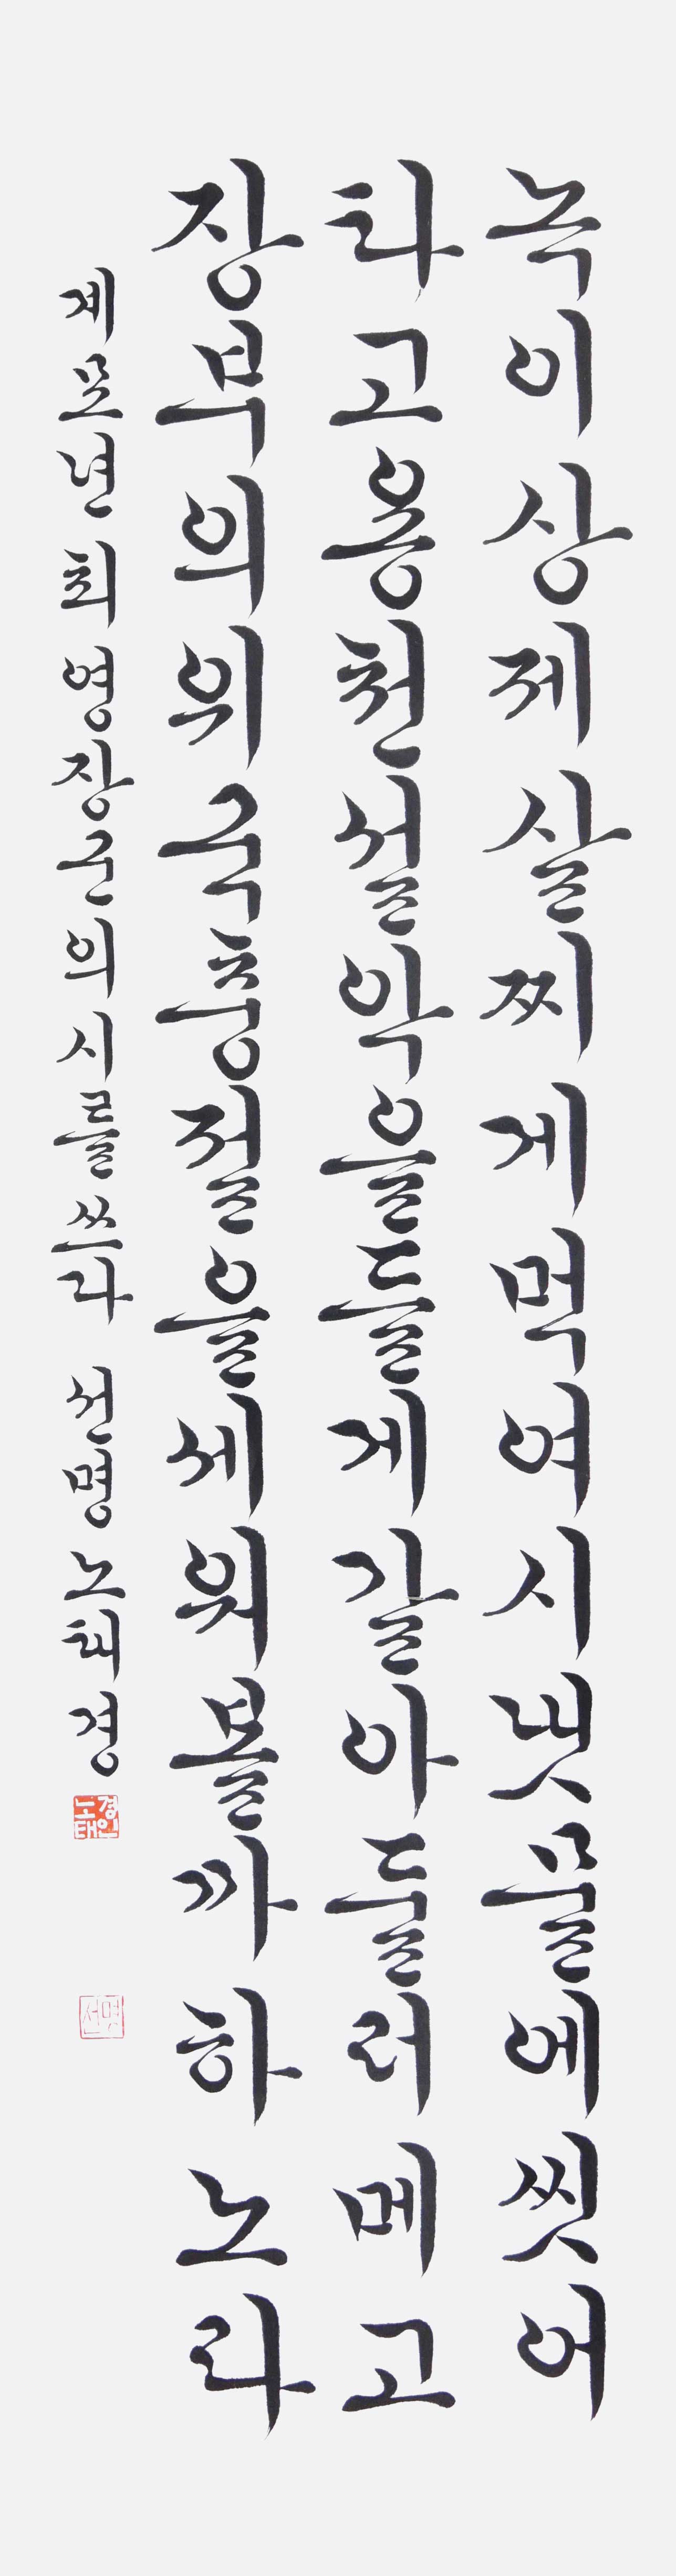 녹이상제살찌게먹여시냇물에씻어
타고용천설악을들게갈아둘러메고
장부의위국충절을세워볼까하노라
계묘년 최영장군의시를쓰다 선명노태경
노태경인
선명